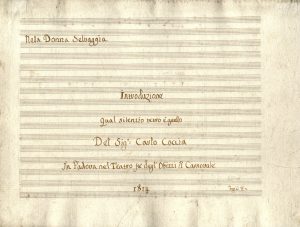 Nela Donna Selvaggia
Introduzione
qual silenzio nero è quello
Del Sigr. Carlo Coccia
In Padova nel Teatro degli Obizzi il Carnovale
1814